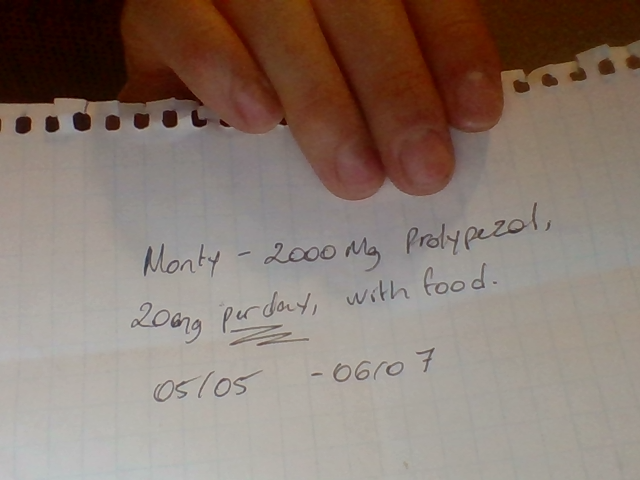 Monty - 2000 Mg Prolypezol,
20mg per day, with food.
05/05 - 06/07